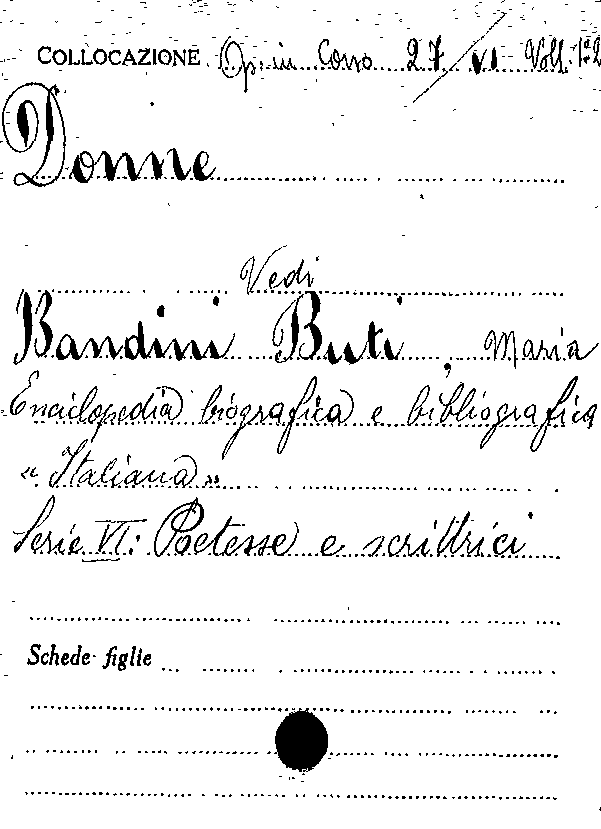 COLLOCAZIONE Op. in Corso 27/VI Voll. 1º 2
Donne
Vedi
Bandini Buti, Maria
Enciclopedia biografica e bibliografica
"Italiana"
Serie VI: Poetesse e scrittrici
Schede figlie